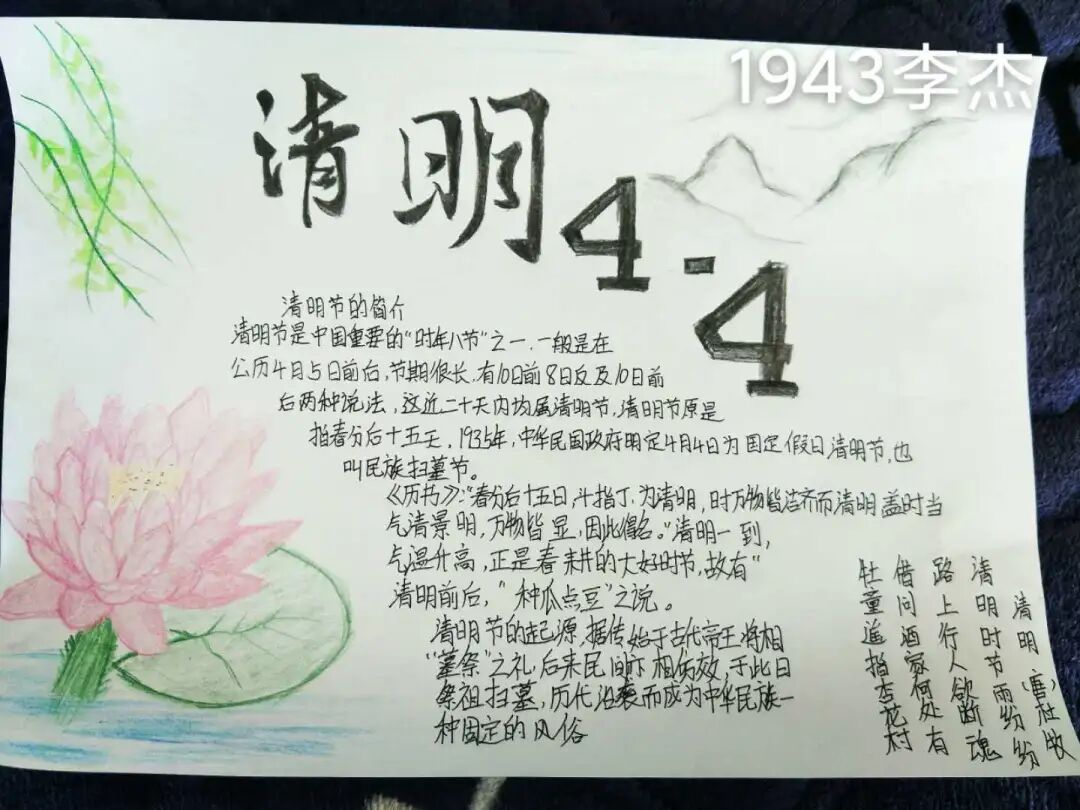 1943李杰
清明
4-4
清明节的简介
清明节是中国重要的“时年八节”之一.一般是在
公历4日5日前后,节期很长,有10日前8日及及10日前
后两种说法,这近二十天内均属清明节,清明节原是
指春分后十五天,1935年,中华民国政府明定4月4日为国定假日清明节,也
叫民族扫墓节。
《历书》:“春分后十五日,斗指丁,为清明,时万物皆洁齐而清明盖时当
气清景明,万物皆显,因此得名。”清明一到,
气温升高,正是春耕的大好时节,故有“
清明前后,“种瓜点豆”之说。
清明节的起源,据传始于古代帝王将相
“墓祭”之礼后来民间亦相仿效,于此日
祭祖扫墓,历代沿袭而成为中华民族一
种固定的风俗
清明(唐)杜牧
清明时节雨纷纷
路上行人欲断魂
借问酒家何处有
牡童遥指杏花村